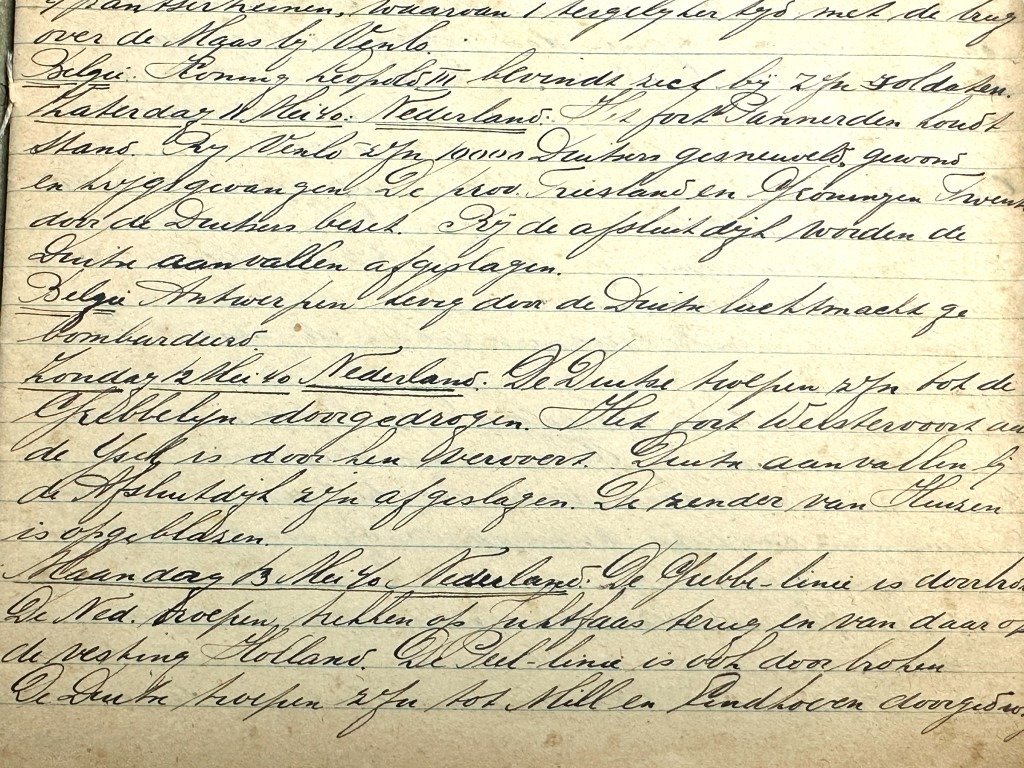 pantsertreinen, waarvan 1 tergelijker tijd met de brug
over de Maas bij Venlo.
België. Koning Leopold III bevindt zich bij zijn soldaten.
Zaterdag 11 Mei 40. Nederland. Het fort Pannerden houdt
stand. Bij Venlo zijn Duitsers gesneuveld, gewond
en krijgsgevangen. De prov. Friesland en Groningen Twente
door de Duitsers bezet. Bij de afsluitdijk worden de
Duitse aanvallen afgeslagen.
België Antwerpen hevig door de Duitse luchtmacht ge
bombardeerd.
Zondag 12 Mei 40 Nederland. De Duitse troepen zijn tot de
Grebbelijn doorgedrogen. Het fort Westervoort aan
de Ysel is door hen verovert. Duitse aanvallen bij
de Afsluitdijk zijn afgeslagen. De zender van Huizen
is opgeblazen.
Maandag 13 Mei 40 Nederland. De Grebbe-linie is doorbro
De Ned. troepen trekken op Jutfaas terug en van daar op
de vesting Holland. De Peel-linie is ook doorbroken
De Duitse troepen zijn tot Mill en Eindhoven